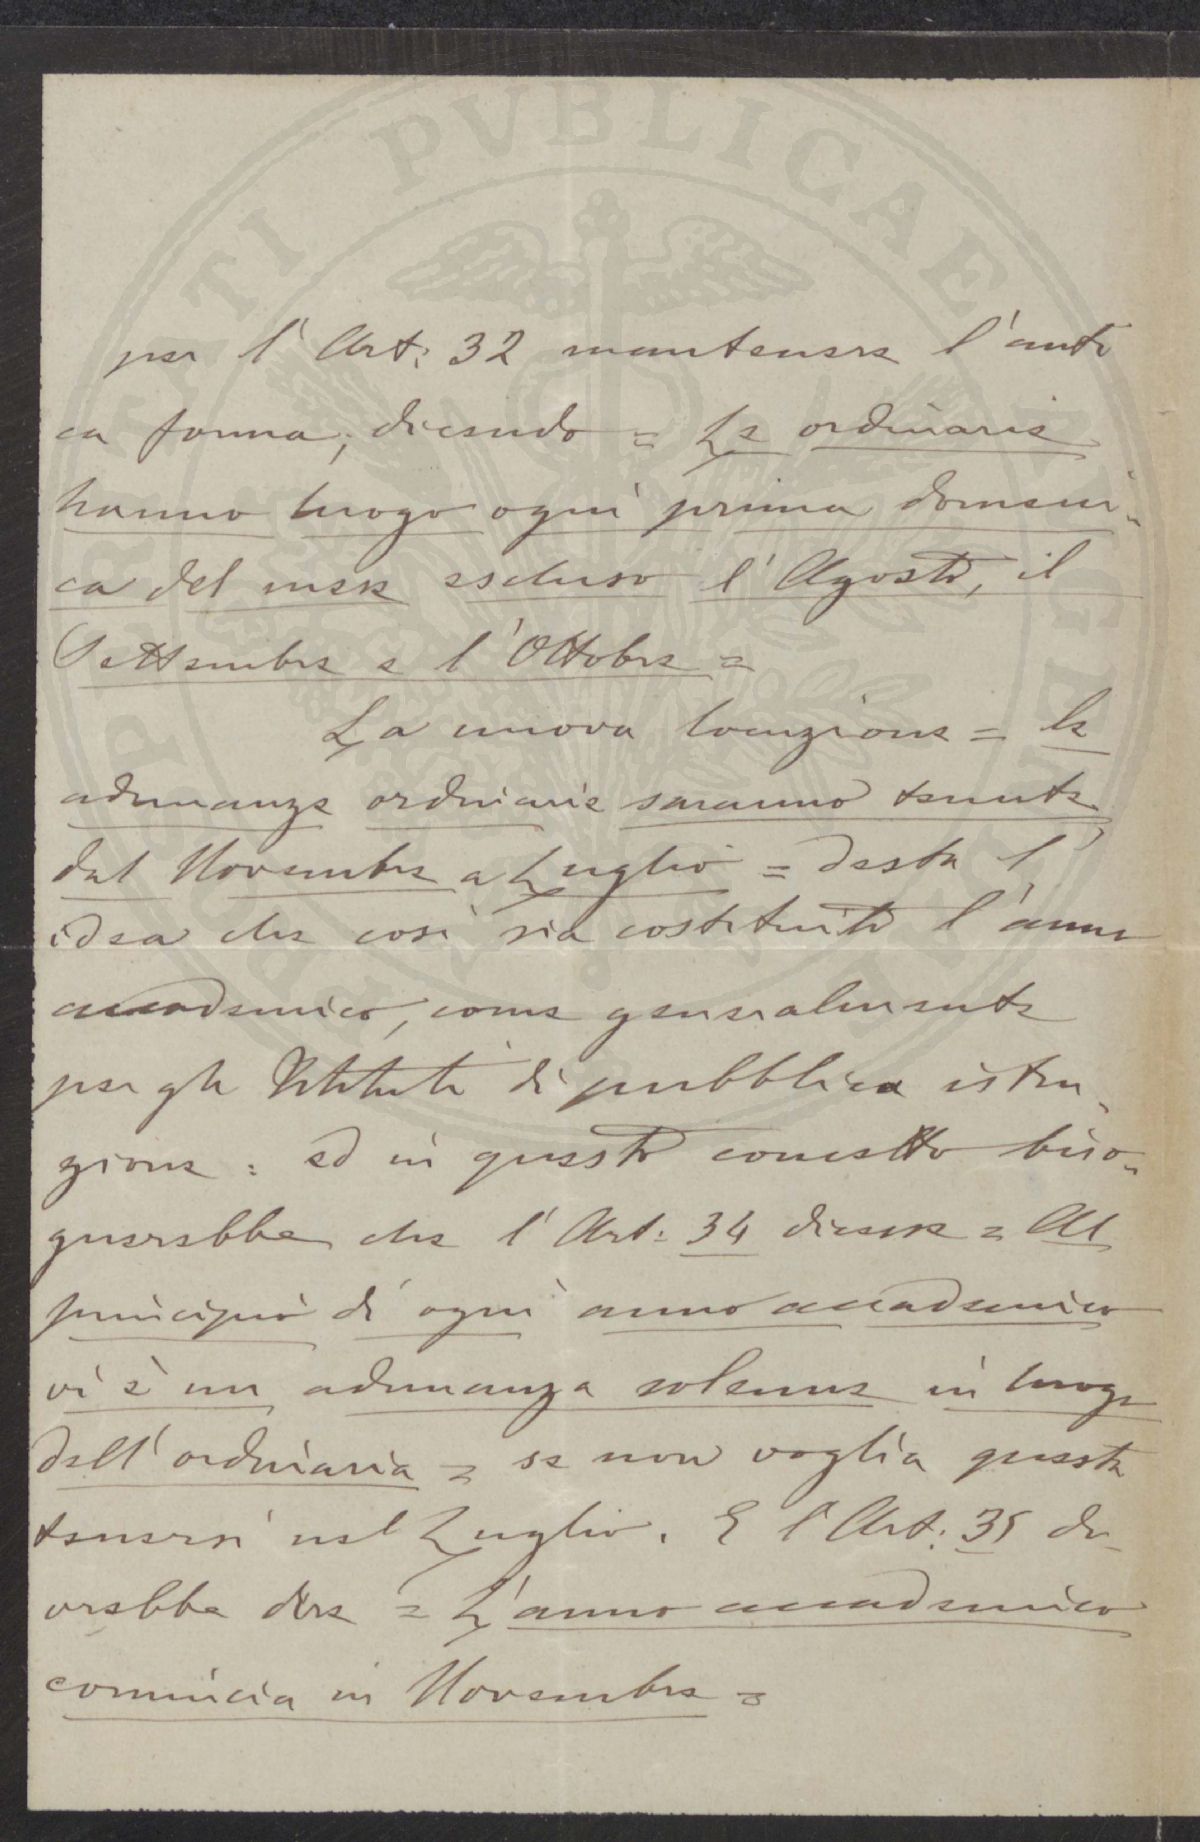 per l'Art: 32 mantenere l'anti
ca forma; dicendo = Le ordinarie
hanno luogo ogni prima domeni-
ca del mese escluso l'Agosto, il
Settembre e l'Ottobre =
La nuova locuzione = le
adunanze ordinarie saranno tenute
dal Novembre a Luglio = desta l'
idea che così sia costituito l'anno
accademico, come generalmente
per gli Istituti di pubblica istru-
zione: ed in questo concetto biso-
gnerebbe che l'Art: 34 dicesse = Al
principio di ogni anno accademico
vi è un adunanza solenne in luogo
dell'ordinaria = se non voglia questa
tenersi nel Luglio. E l'Art: 35 do-
vrebbe dire = L'anno accademico
comincia in Novembre =